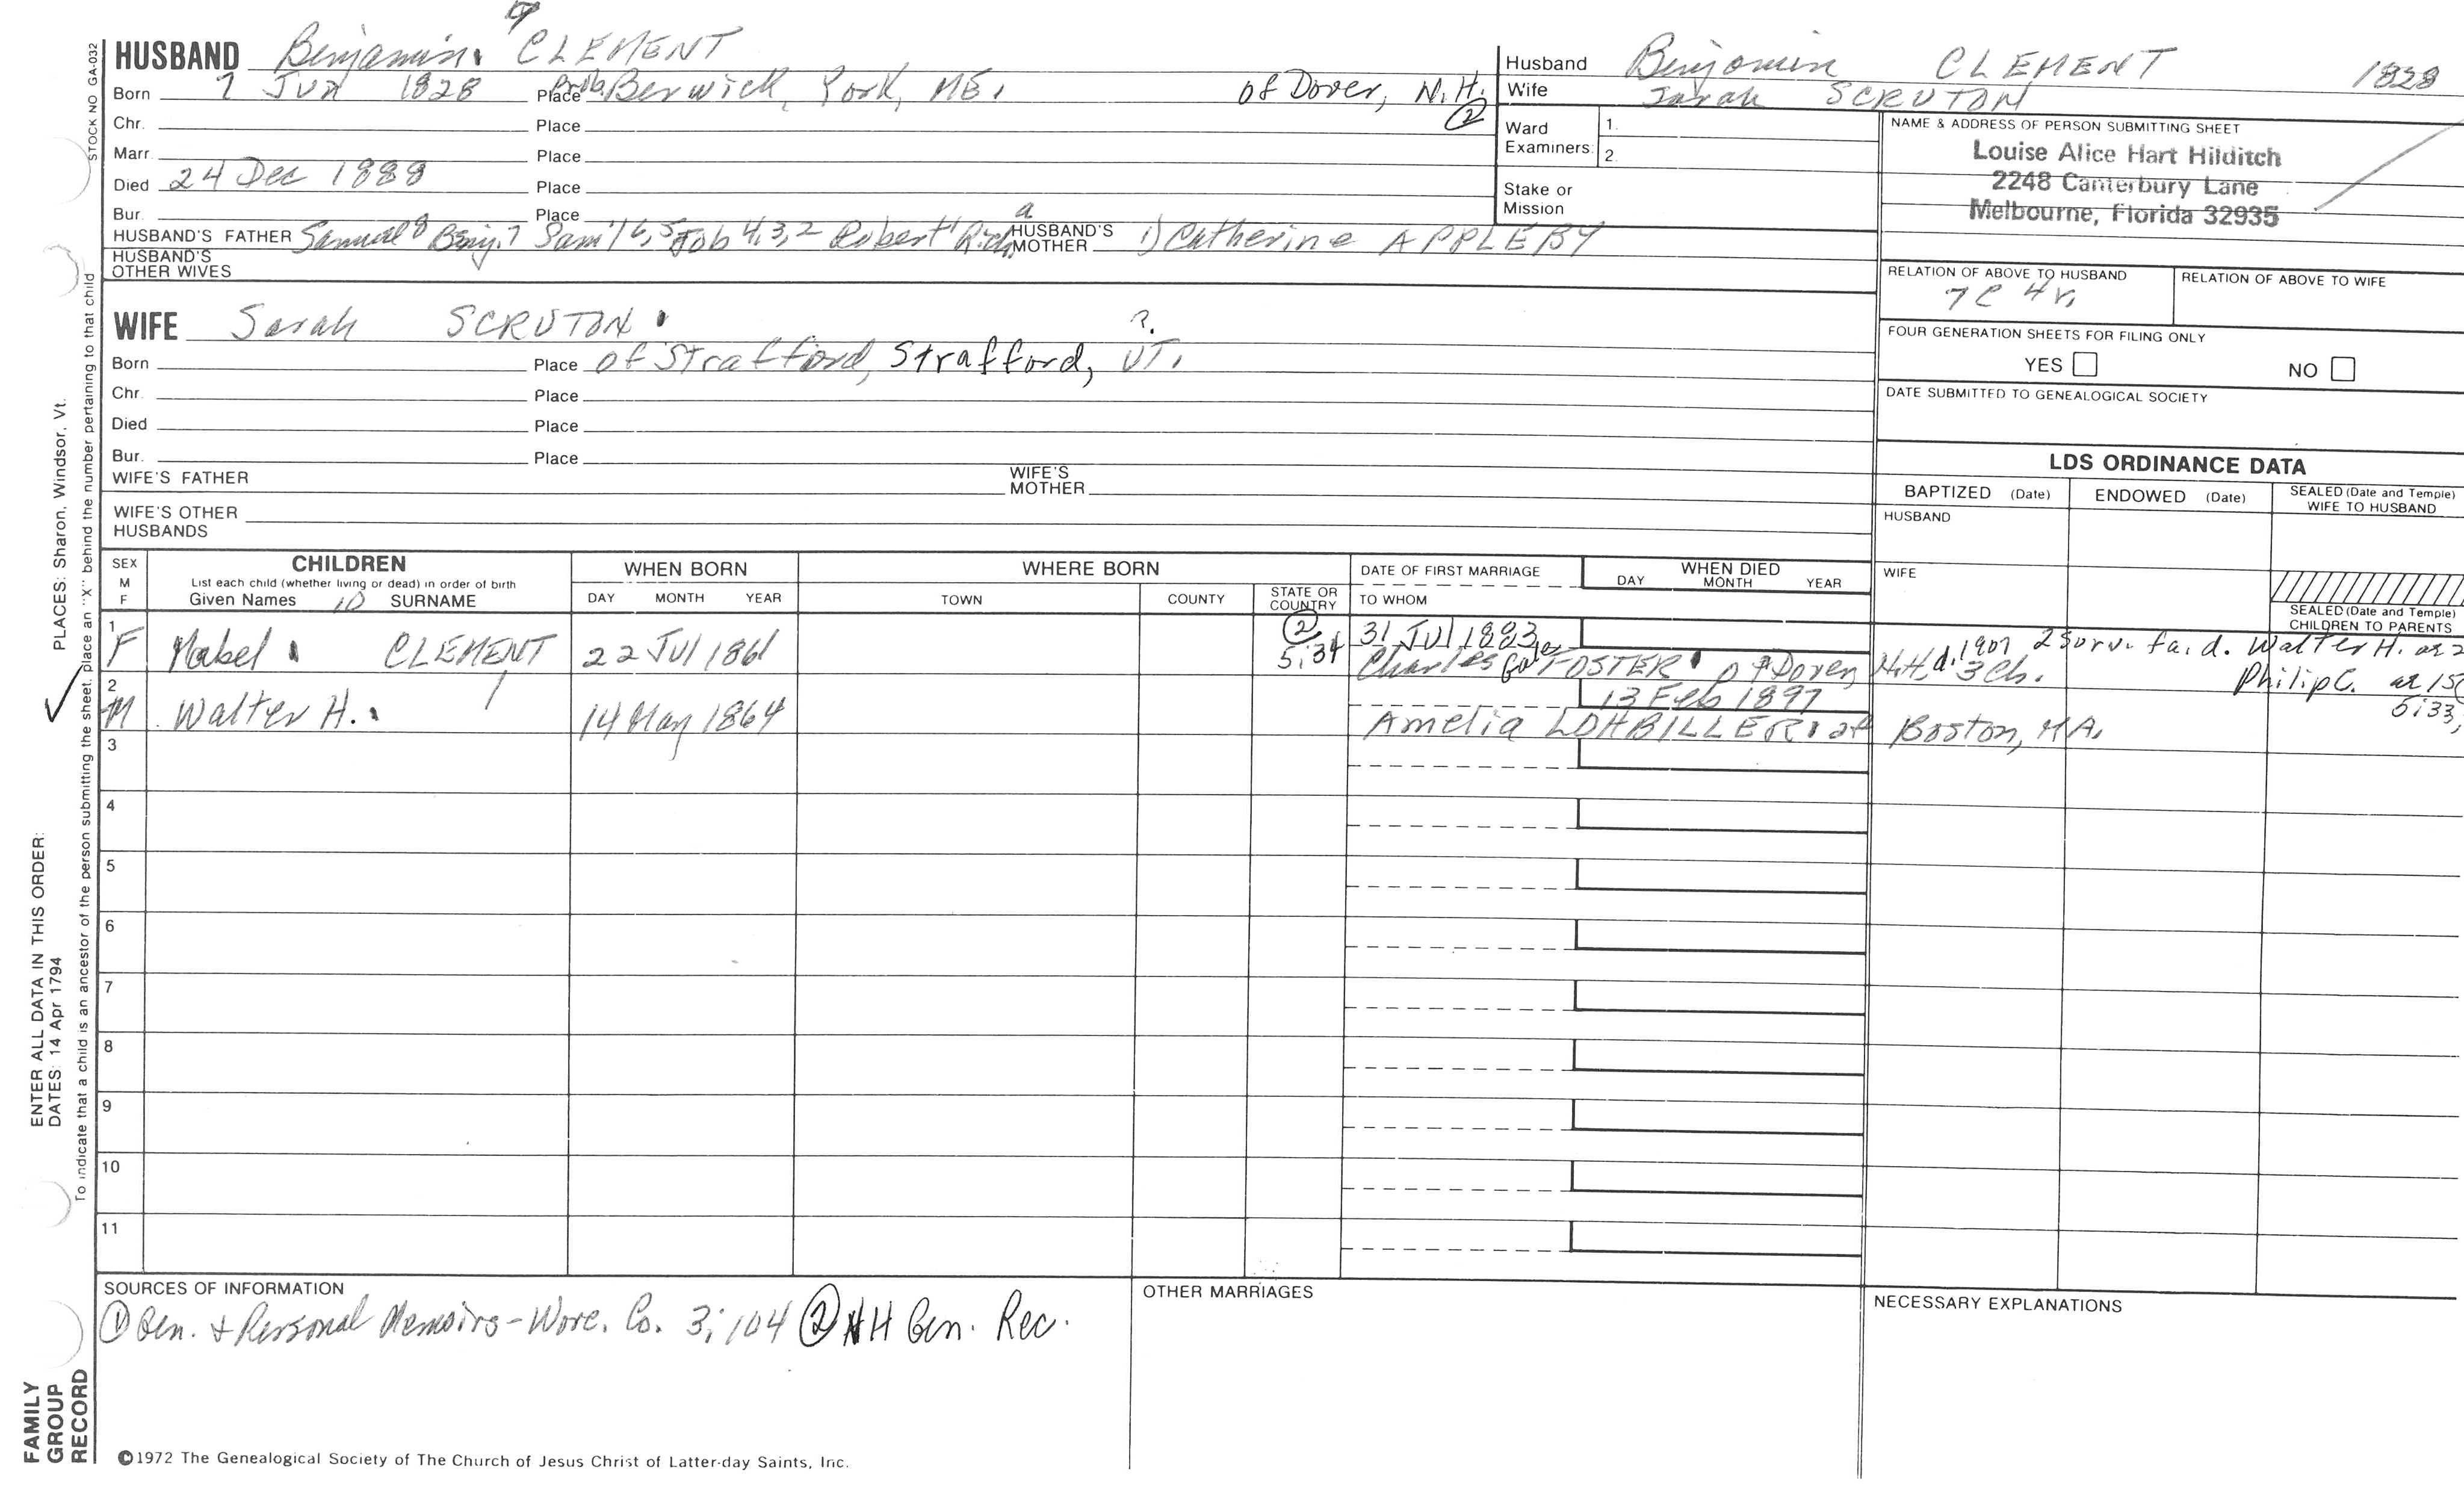 HUSBAND Benjamin CLEMENT
Born 7 Jun 1828 Place Prob. Berwick, York, ME. of Dover, N.H. ②
Chr. Place
Marr. Place
Died 24 Dec 1888 Place
Bur. Place
HUSBAND'S FATHER Samuel 8 Benj. 7 Sam'l 6,5 Job 4,3,2 Robert 1 Rich a HUSBAND'S MOTHER 1) Catherine APPLEBY
HUSBAND'S OTHER WIVES
WIFE Sarah SCRUTON
Born Place of Strafford, Strafford, VT. ?
Chr. Place
Died Place
Bur. Place
WIFE'S FATHER WIFE'S MOTHER
WIFE'S OTHER HUSBANDS
Husband Benjamin CLEMENT 1828
Wife Sarah SCRUTON
Ward Examiners: 1. 2.
Stake or Mission
NAME & ADDRESS OF PERSON SUBMITTING SHEET
Louise Alice Hart Hilditch
2248 Canterbury Lane
Melbourne, Florida 32935
RELATION OF ABOVE TO HUSBAND RELATION OF ABOVE TO WIFE
7C 4r.
FOUR GENERATION SHEETS FOR FILING ONLY
YES NO
DATE SUBMITTED TO GENEALOGICAL SOCIETY
LDS ORDINANCE DATA
BAPTIZED (Date) ENDOWED (Date) SEALED (Date and Temple) WIFE TO HUSBAND
HUSBAND
WIFE
SEALED (Date and Temple) CHILDREN TO PARENTS
SEX M F
CHILDREN
List each child (whether living or dead) in order of birth
Given Names 10 SURNAME
WHEN BORN
DAY MONTH YEAR
WHERE BORN
TOWN COUNTY STATE OR COUNTRY
DATE OF FIRST MARRIAGE
TO WHOM
WHEN DIED
DAY MONTH YEAR
1 F Mabel CLEMENT 22 Jul 1861 ② 5:34 31 Jul 1883
Charles FOSTER of Dover, N.H. d. 1907 2 surv. fa. d. Walter H. ae 2
3 Ch. Philip C. ae 15
5:33,
2 M Walter H. 14 May 1864 13 Feb 1897
Amelia LOHBILLER at Boston, MA.
3
4
5
6
7
8
9
10
11
SOURCES OF INFORMATION
① Gen. & Personal Memoirs - Worc. Co. 3:104 ② NH Gen. Rec.
OTHER MARRIAGES
NECESSARY EXPLANATIONS
©1972 The Genealogical Society of The Church of Jesus Christ of Latter-day Saints, Inc.
STOCK NO GA-032
To indicate that a child is an ancestor of the person submitting the sheet, place an "X" behind the number pertaining to that child
PLACES: Sharon, Windsor, Vt.
ENTER ALL DATA IN THIS ORDER:
DATES: 14 Apr 1794
FAMILY
GROUP
RECORD